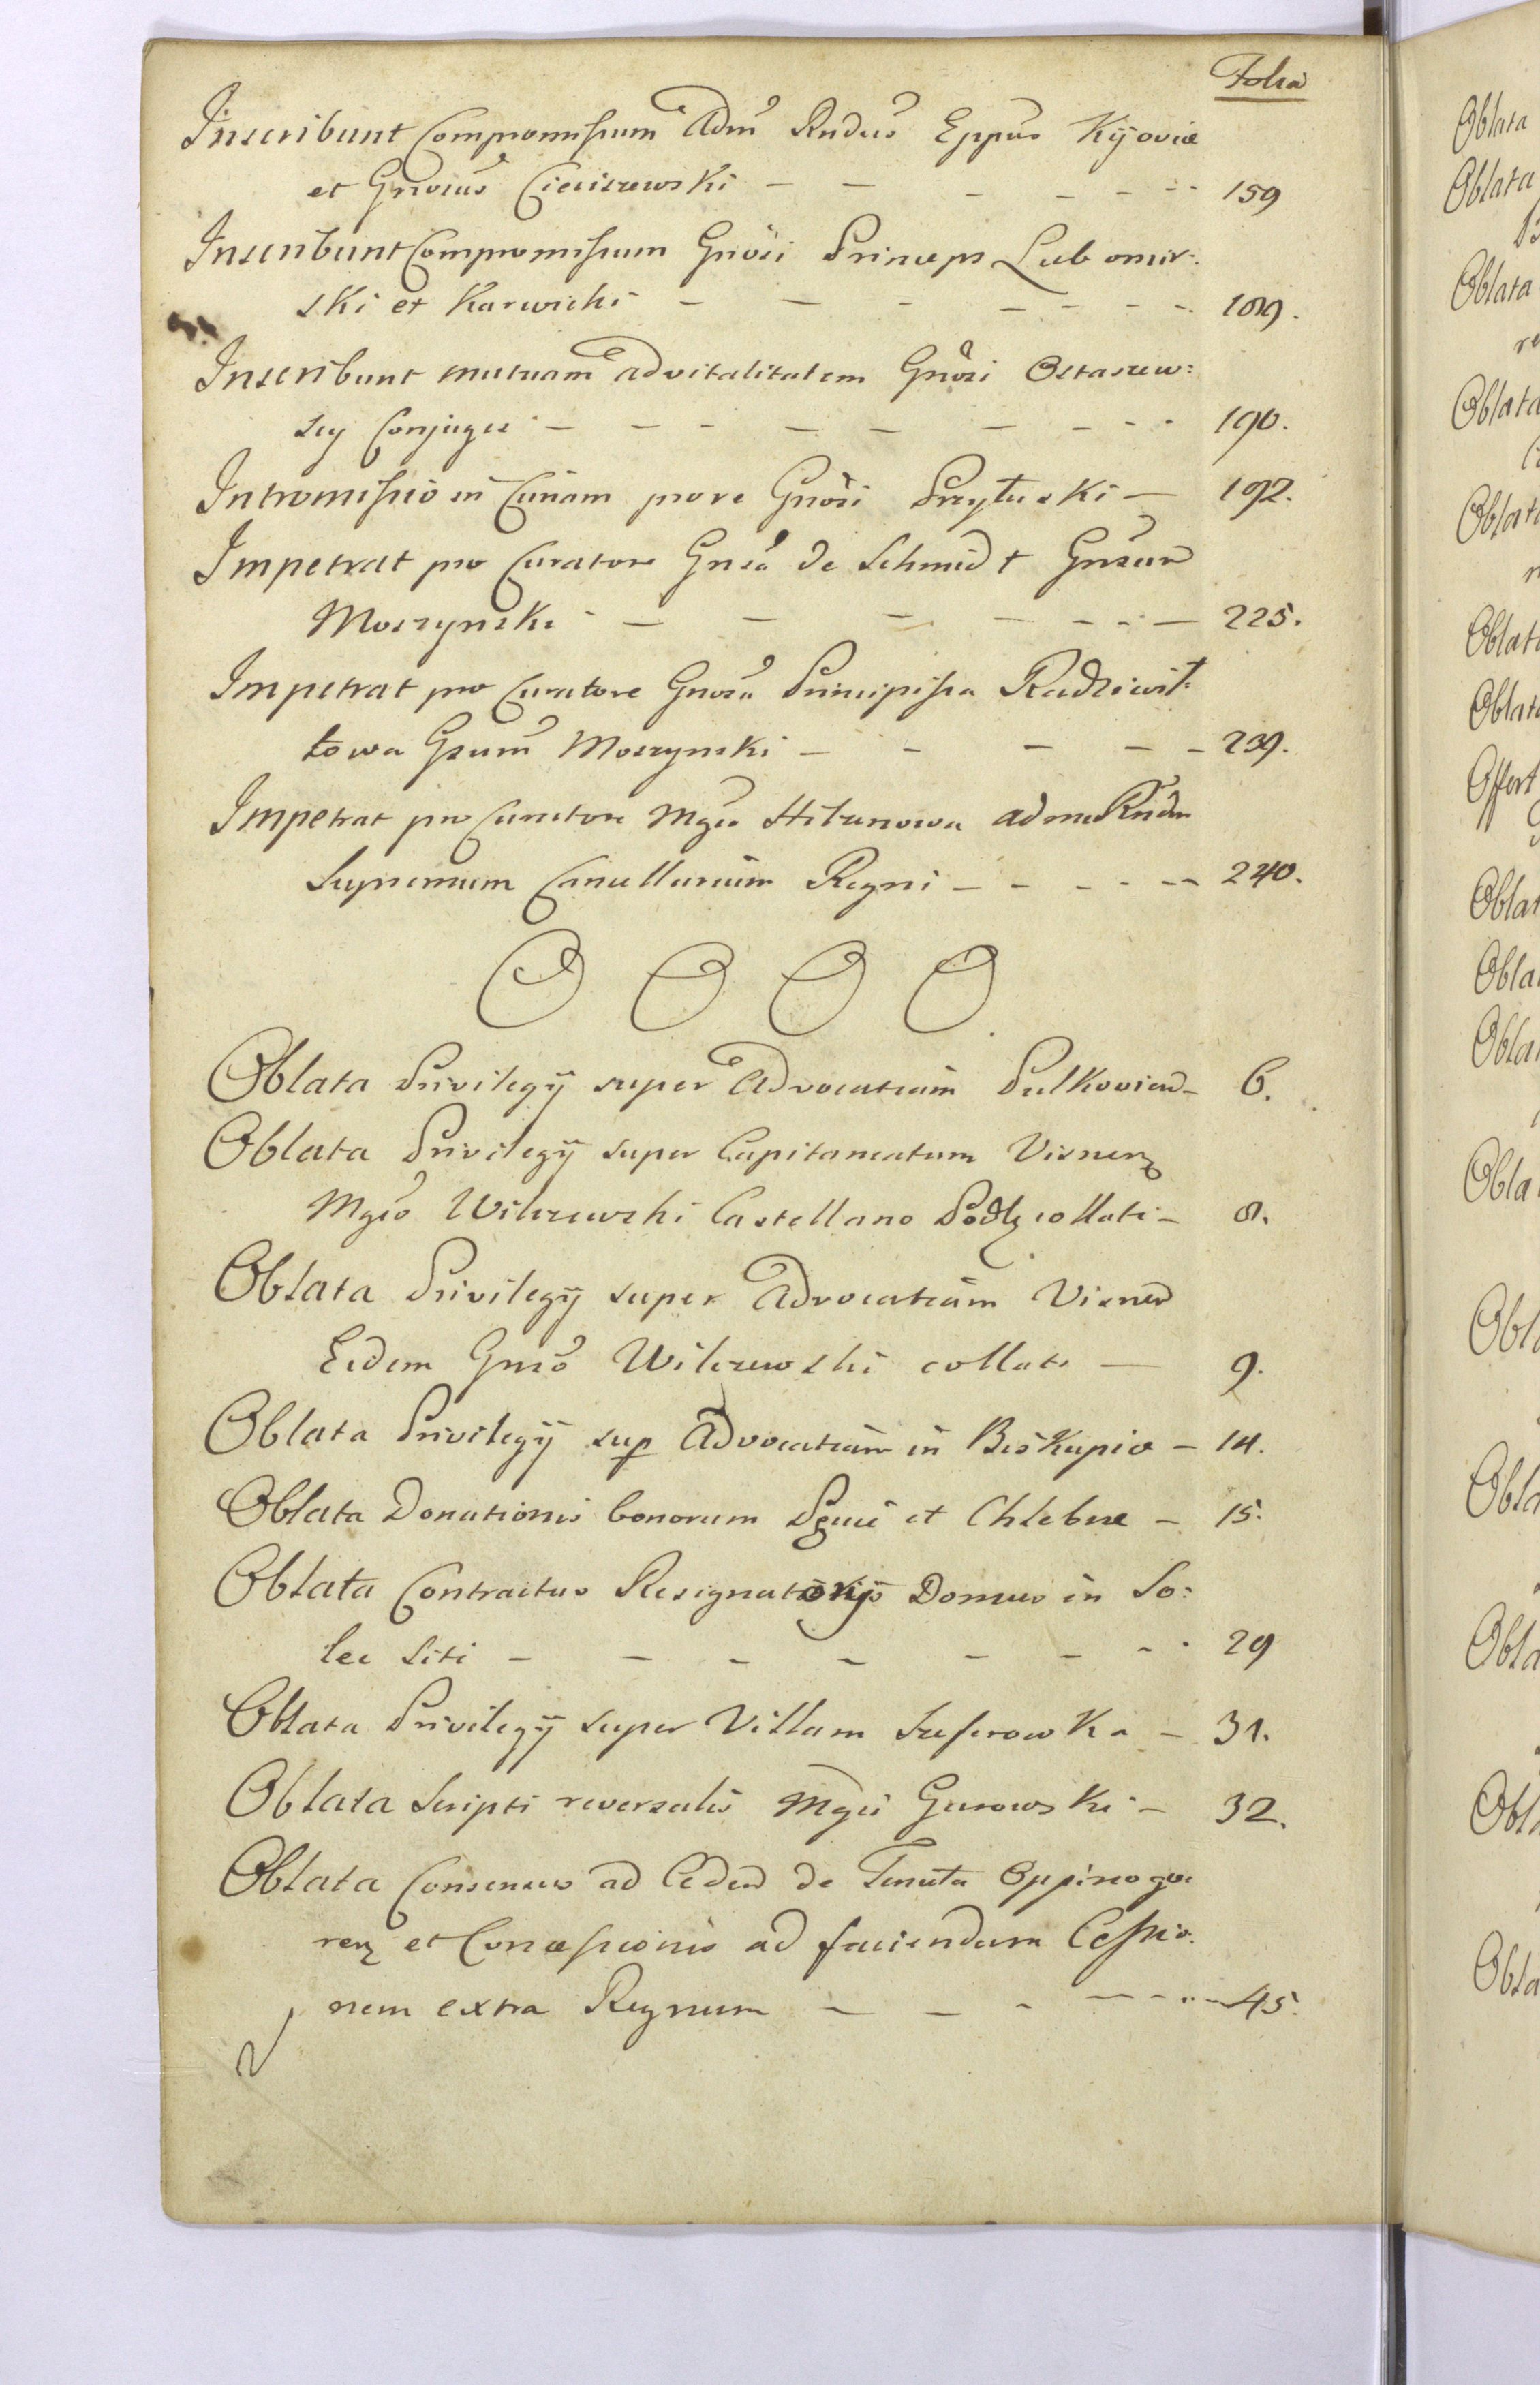 Folia
Inscribunt Compromissum Adm̃ Rndus Eppus Kijoviæ
et Gnosus Cieciszewski - - - - - - 159
Inscribunt Compromissum Gnosi Princeps Lubomir:
ski et Karwicki - - - - - - - 189.
Inscribunt mutuam advitalitatem Gnosi Ostaszew:
scy Conjuges - - - - - - - - 190.
Intromissio in Curiam prore Gnosi Przyłuski - 192.
Impetrat pro Curatore Gnsa de Schmidt Gnsum
Moszynski - - - - - - - 225.
Impetrat pro Curatore Gnosa Principissa Radziwił:
łowa Gsum Moszynski - - - - - 239.
Impetrat pro Curatore Mgca admm Rndm
Supremum Cancellarium Regni - - - - - 240.
O O O O.
Oblata Privilegij super Advocatiam Pulkovien - 6.
Oblata Privilegij super Capitaneatum Visnen
Mgco Wilczewski Castellano Podl collati - 8.
Oblata Privilegij super Advocatiam Visnen
Eidem Gnso Wilczewski collati - 9.
Oblata Privilegij sup Advocatiam in Biskupice - 14.
Oblata Donationis bonorum et Chlebne - 15.
Oblata Contractus Resignatorijs Domus in So:
lec siti - - - - - - - - 29
Oblata Privilegij super Villam - 31.
Oblata Scripti reversalis Mgci Gurowski - 32.
Oblata Consensus ad Ceden de Tenuta Oppinogo:
ren et Concessionis ad faciendam Cessio:
nem extra Regnum - - - - - - - 45.
Oblata
Oblata
Oblata
Oblata